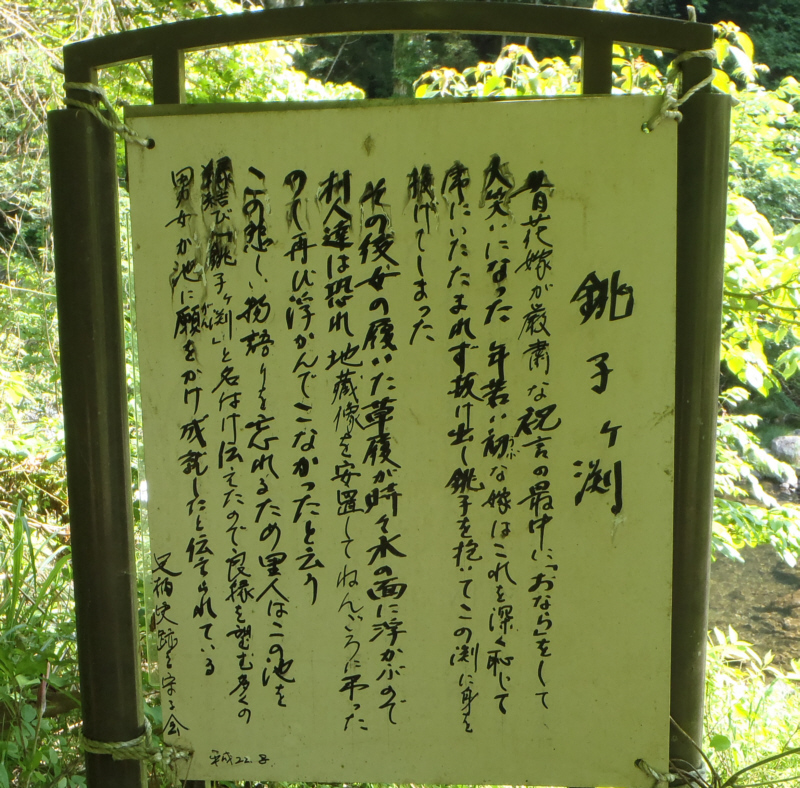 銚子ヶ渕
昔花嫁が厳粛な祝言の最中に「おなら」をして
大笑いになった年若い初な嫁はこれを深く恥じて
席にいたたまれず抜け出し銚子を抱いてこの渕に身を
投げてしまった
その後女の履いた草履が時々水の面に浮かぶので
村人達は恐れ地蔵像を安置してねんごろに弔った
のち再び浮かんでこなかったと云う
この悲しい物語りを忘れるため里人はこの池を
縁結び「銚子ヶ渕」と名付け伝えたので良縁を望む多くの
男女が池に願をかけ成就したと伝えられている
足柄史跡を守る会
平成22.8